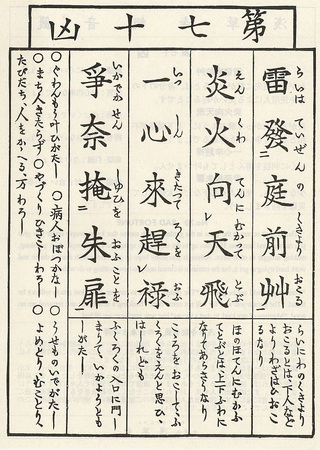 第七十凶
雷發二庭前艸一
らいは ていぜん の くさより おこる
らいにわのくさより
おこるとは、下人など
よりわざはひおこ
るなり
炎火向レ天飛
えん くわ てんにむかつて とぶ
ほのほてんにむかふ
てとぶとは、上下ふわに
なりてあらさうなり
一心來趕レ禄
いつ しん きたつて ろくを おふ
こころをおこして、ふ
くろくをえんと思ひ、
はしれども
爭奈掩二朱扉一
いかでか せん しゆひを おふことを
ふくろくの入口に門し
まりて、いかようとも
しがたし
○ぐわんもう叶ひがたし ○病人おぼつかなし ○うせものいでがたし
○まち人きたらず ○やづくりひきこしわろし ○よめとり、むことり、
たびだち、人をかへる、万わろし